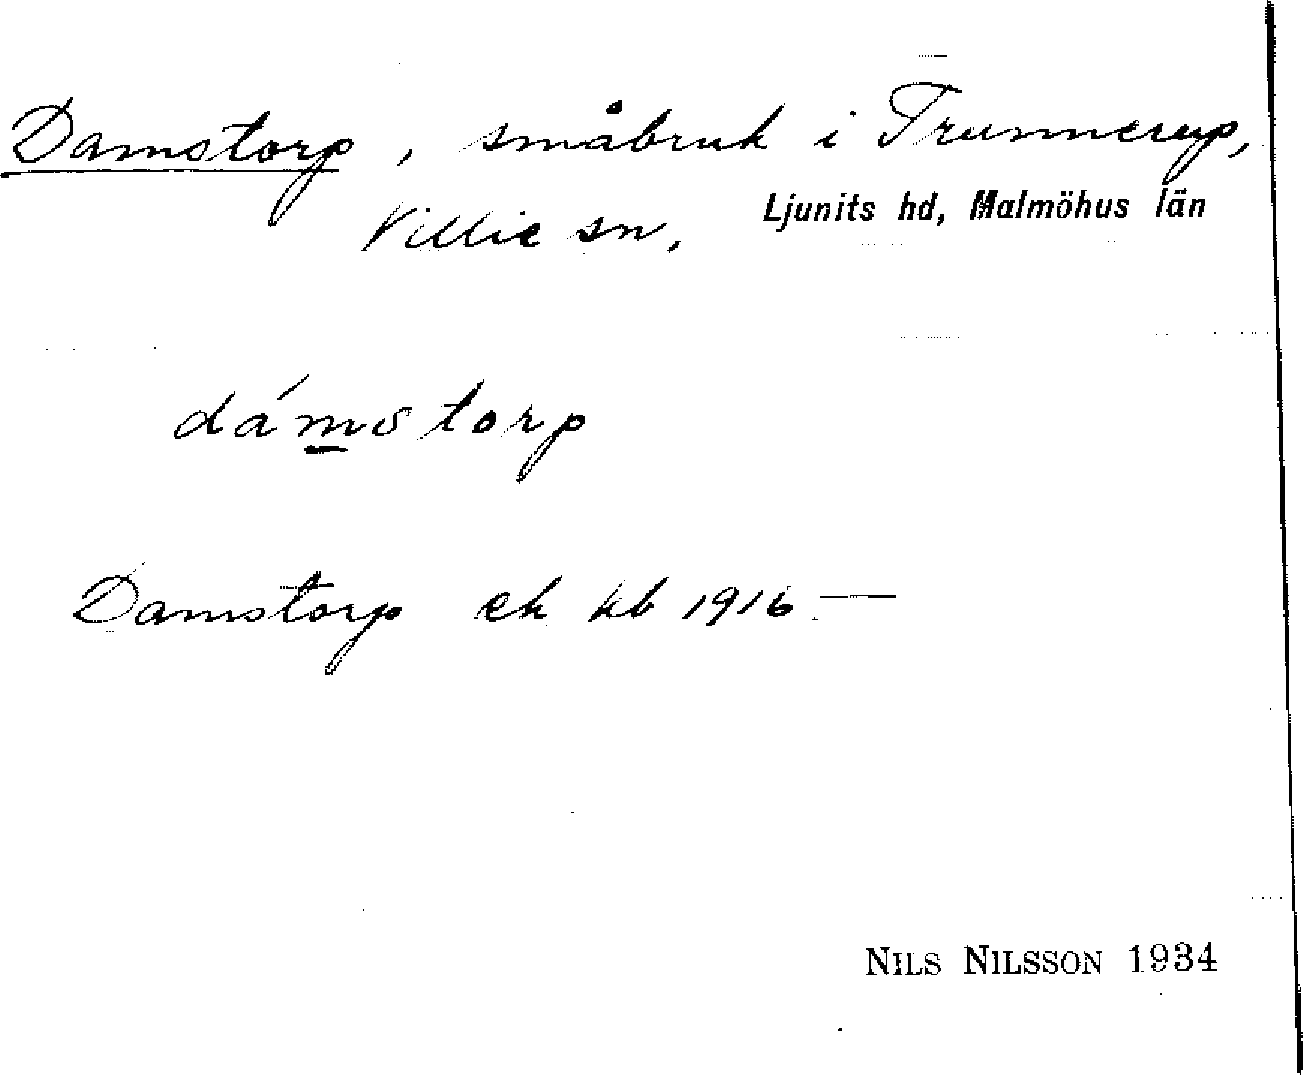 Damstorp, småbruk i Trunnerup,
Villie sn, Ljunits hd, Malmöhus län
dámstorp
Damstorp ek kb 1916 —
NILS NILSSON 1934